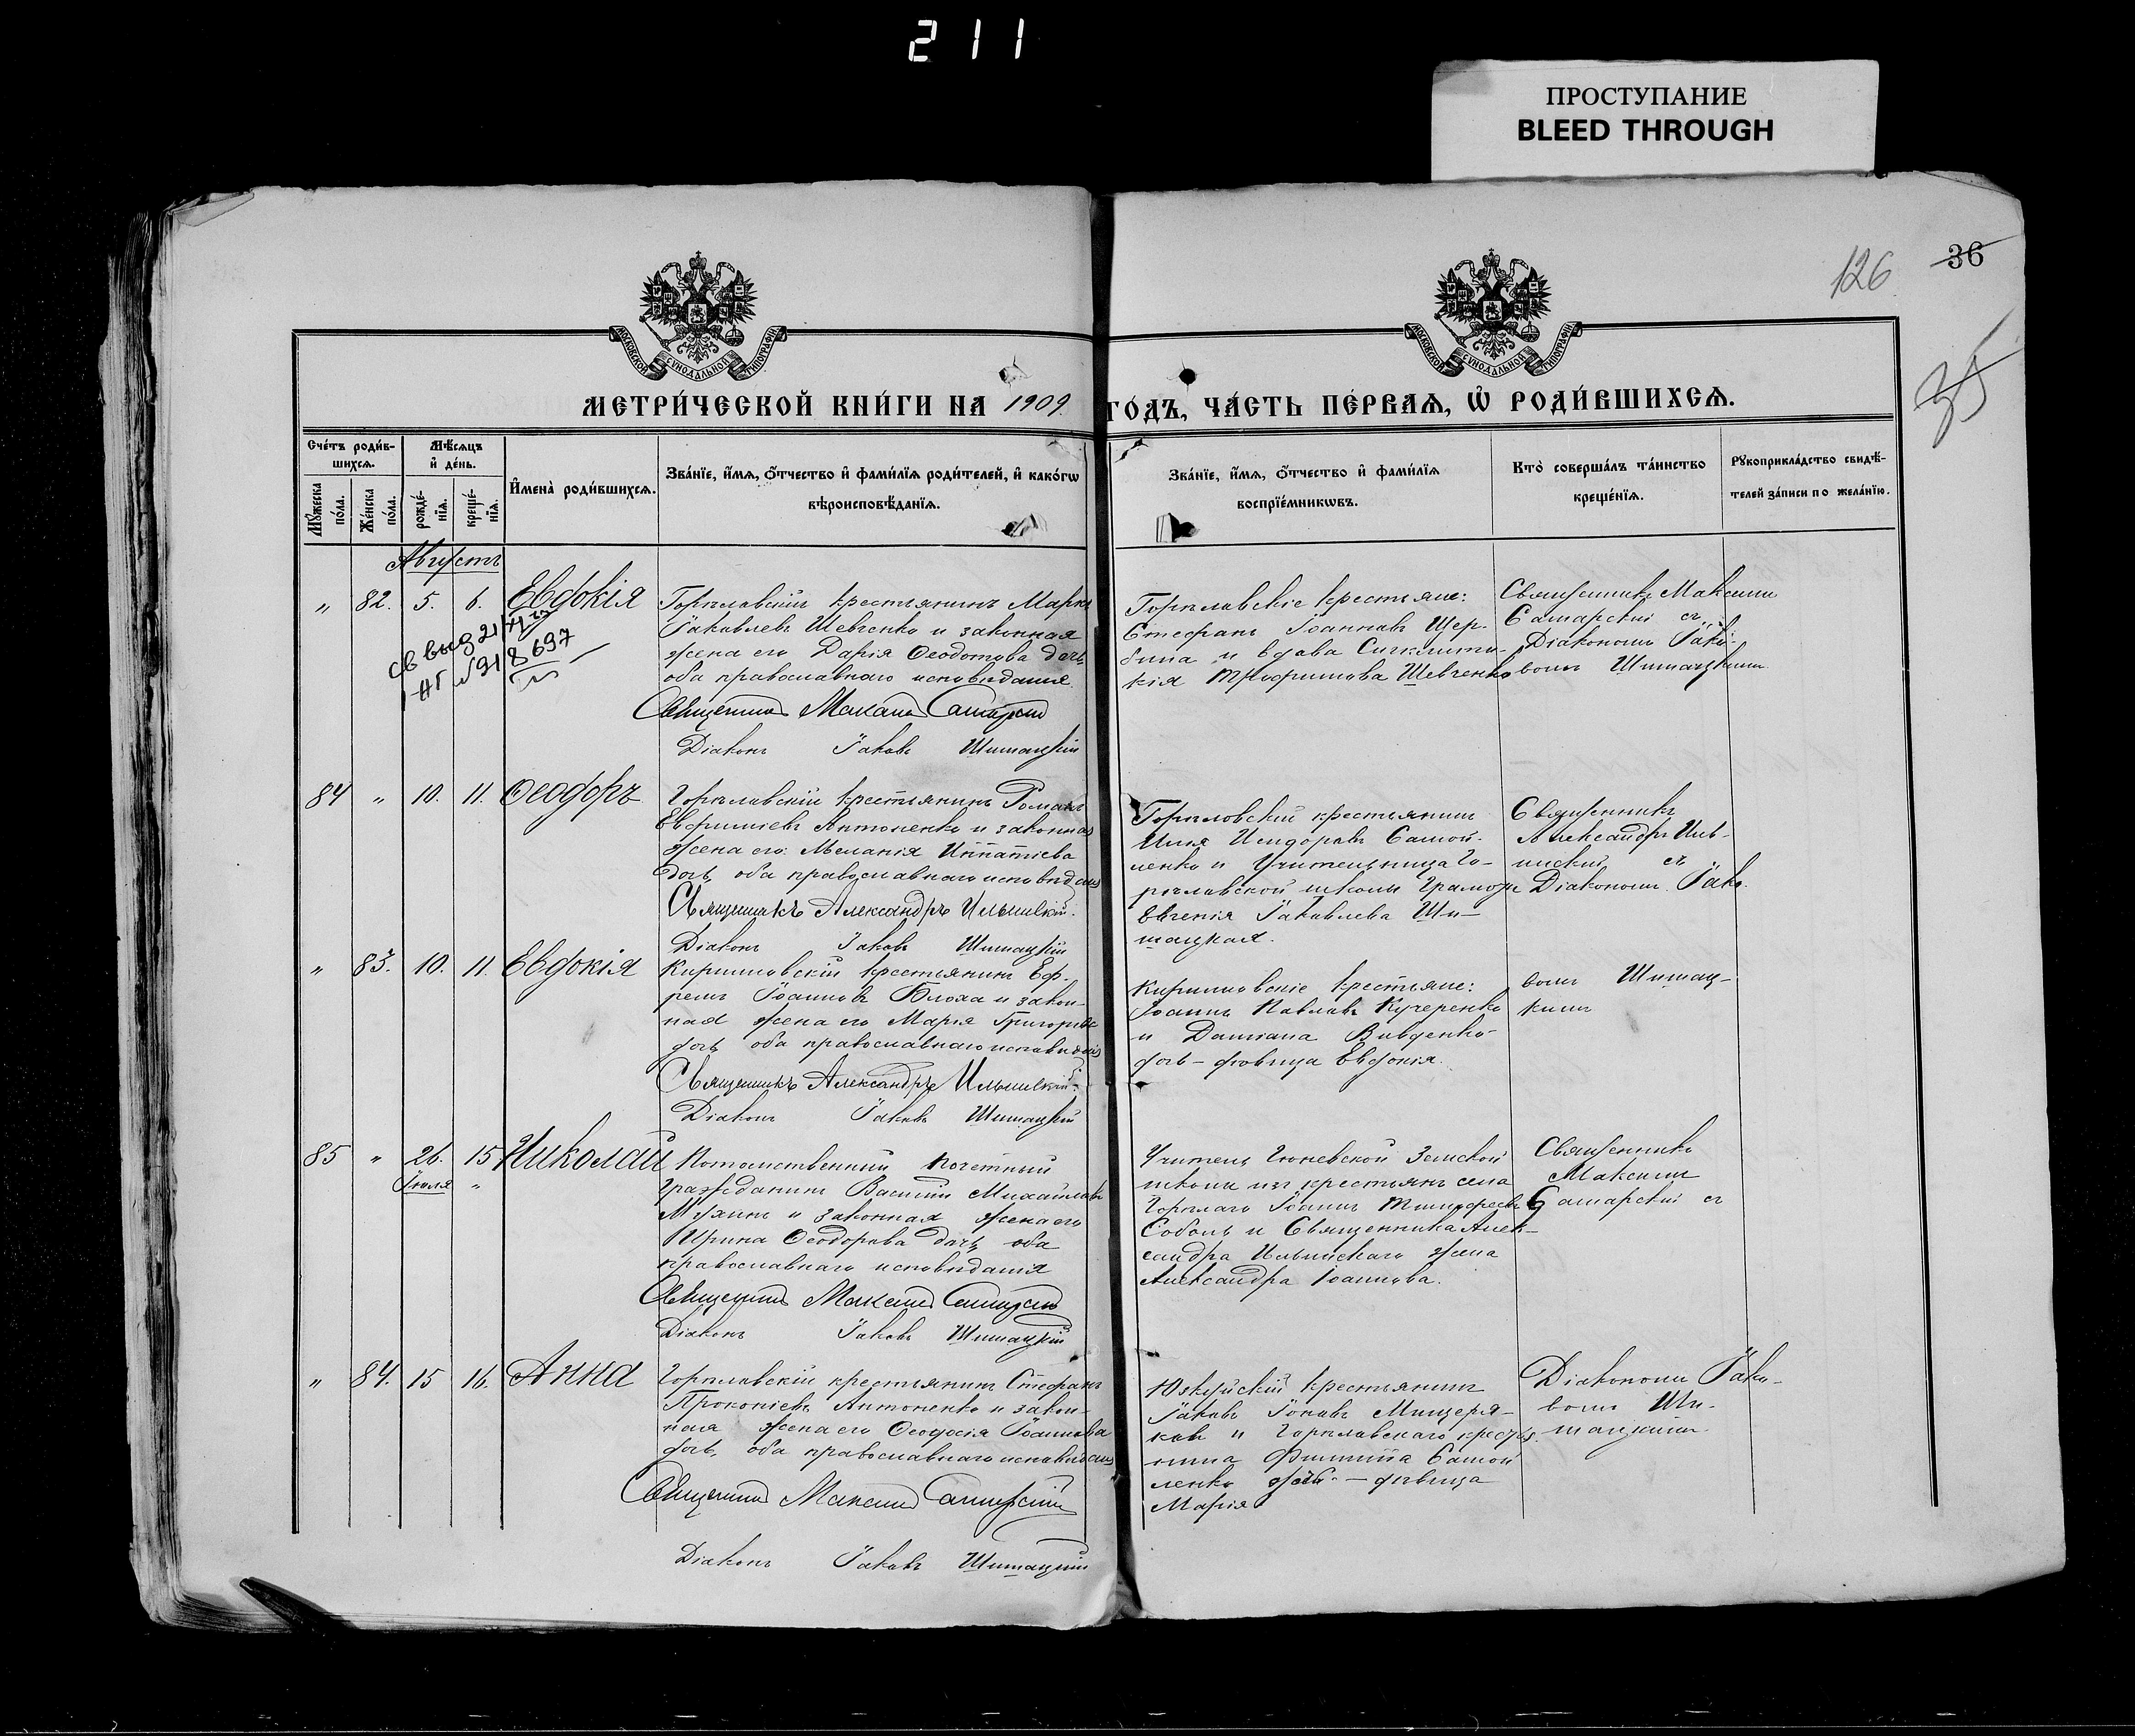 211
ПРОСТУПАНИЕ
BLEED THROUGH
126
36
35
МОСКОВСКОЙ СУНОДАЛЬНОЙ ТИПОГРАФІИ
МОСКОВСКОЙ СУНОДАЛЬНОЙ ТИПОГРАФІИ
МЕТРИ́ЧЕСКОЙ КНИ́ГИ НА 1909 ГО́ДЪ, ЧА́СТЬ ПЕ́РВАѦ, Ѽ РОДИ́ВШИХСѦ.
Сче́тъ роди́в-
шихсѧ.
Мꙋ́жеска по́ла.
Же́нска по́ла.
Мѣ́сѧцъ
и҆ де́нь.
рожде́-
нїѧ.
креще́-
нїѧ.
И҆мена̀ роди́вшихсѧ.
Зва́нїе, и҆́мѧ, ѻ҆́тчество и҆ фами́лїѧ роди́телей, и҆ како́гѡ
вѣроисповѣ́данїѧ.
Зва́нїе, и҆́мѧ, ѻ҆́тчество и҆ фами́лїѧ
воспрїе́мникѡвъ.
Кто̀ соверша́лъ та́инство
креще́нїѧ.
Рꙋкоприкла́дство свидѣ́-
телей за́писи по жела́нїю.
Августъ
" 82. 5. 6. Евдокія
св выд 21
НГ №318697
Горѣлавскій крестьянинъ Маркъ
Іаковлевъ Шевченко и законная
жена его Дарія Ѳеодотова дочь
оба православнаго исповѣданія.
Священникъ Максимъ Самарскій
Діаконъ Іаковъ Шишацкій
Горѣлавскіе крестьяне:
Стефанъ Іоанновъ Щер-
бина и вдова Сигклити-
кія Трофимова Шевченко
Священникъ Максимъ
Самарскій съ
Діакономъ Іако-
вомъ Шишацкимъ
84 " 10. 11. Ѳеодоръ
Горѣлавскій крестьянинъ Романъ
Евфиміевъ Антоненко и законная
жена его Меланія Игнатіева
дочь, оба православнаго исповѣданія
Священникъ Александръ Ильинскій.
Діаконъ Іаковъ Шишацкій
Горѣловскій крестьянинъ
Илія Исидоровъ Самой-
ленко и Учительница Го-
рѣлавской школы Грамоты
Евгенія Іаковлева Ши-
шацкая.
Священникъ
Александръ Иль-
инскій съ
Діакономъ Іако-
" 83. 10. 11. Евдокія
Кирилловскій крестьянинъ Еф-
ремъ Іоанновъ Блоха и закон-
ная жена его Марія Григорьева
дочь, оба православнаго исповѣданія
Священникъ Александръ Ильинскій.
Діаконъ Іаковъ Шишацкій
Кирилловскіе крестьяне:
Іоаннъ Павловъ Кучеренко
и Даміана Вивденко
дочь - дѣвица Евдокія.
вомъ Шишац-
кимъ
85 " 26. 15 Николай
Іюля "
Потомственный почетный
гражданинъ Василій Михайловъ
Мухинъ и законная жена его
Ирина Ѳеодорова дочь, оба
православнаго исповѣданія
Священникъ Максимъ Самарскій
Діаконъ Іаковъ Шишацкій
Учитель Гюневской Земской
школы изъ крестьянъ села
Горѣлаго Іоаннъ Тимофеевъ
Соболь и Священника Алек-
сандра Ильинскаго жена
Александра Іоаннова.
Священникъ
Максимъ
Самарскій съ
" 84. 15 16. Анна
Горѣлавскій крестьянинъ Стефанъ
Прокопіевъ Антоненко и закон-
ная жена его Ѳеодосія Іоаннова
дочь, оба православнаго исповѣданія
Священникъ Максимъ Самарскій
Діаконъ Іаковъ Шишацкій
Юзкуйскій крестьянинъ
Іаковъ Іоновъ Мищеря-
ковъ и Горѣлавскаго крестья-
нина Филиппа Самой
ленко дочь - дѣвица
Марія
Діакономъ Іако-
вомъ Ши-
шацкимъ